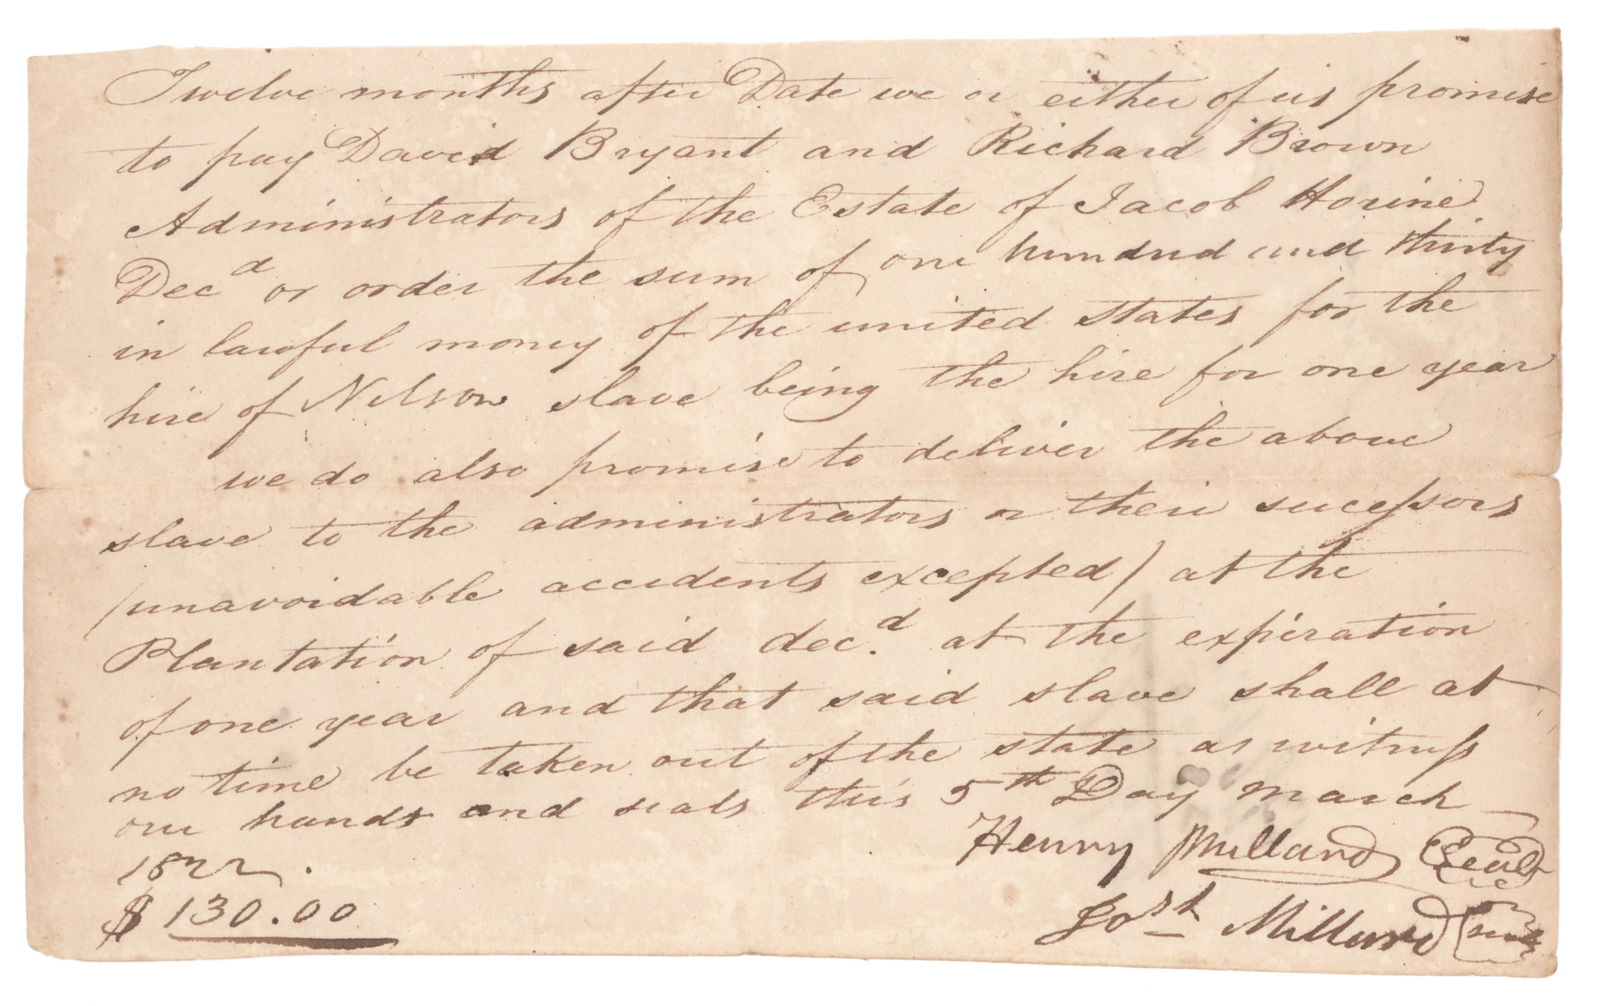 Twelve months after Date we or either of us promise
to pay David Bryant and Richard Brown
Administrators of the Estate of Jacob Horine
Decd or order the sum of one hundred and thirty
in lawful money of the united states for the
hire of Nelson slave being the hire for one year
we do also promise to deliver the above
slave to the administrators or their successors
(unavoidable accidents excepted) at the
Plantation of said decd. at the expiration
of one year and that said slave shall at
no time be taken out of the state as witness
our hands and seals this 5th Day March
1822.
Henry Millard Seal
$130.00
Josh Millard Seal